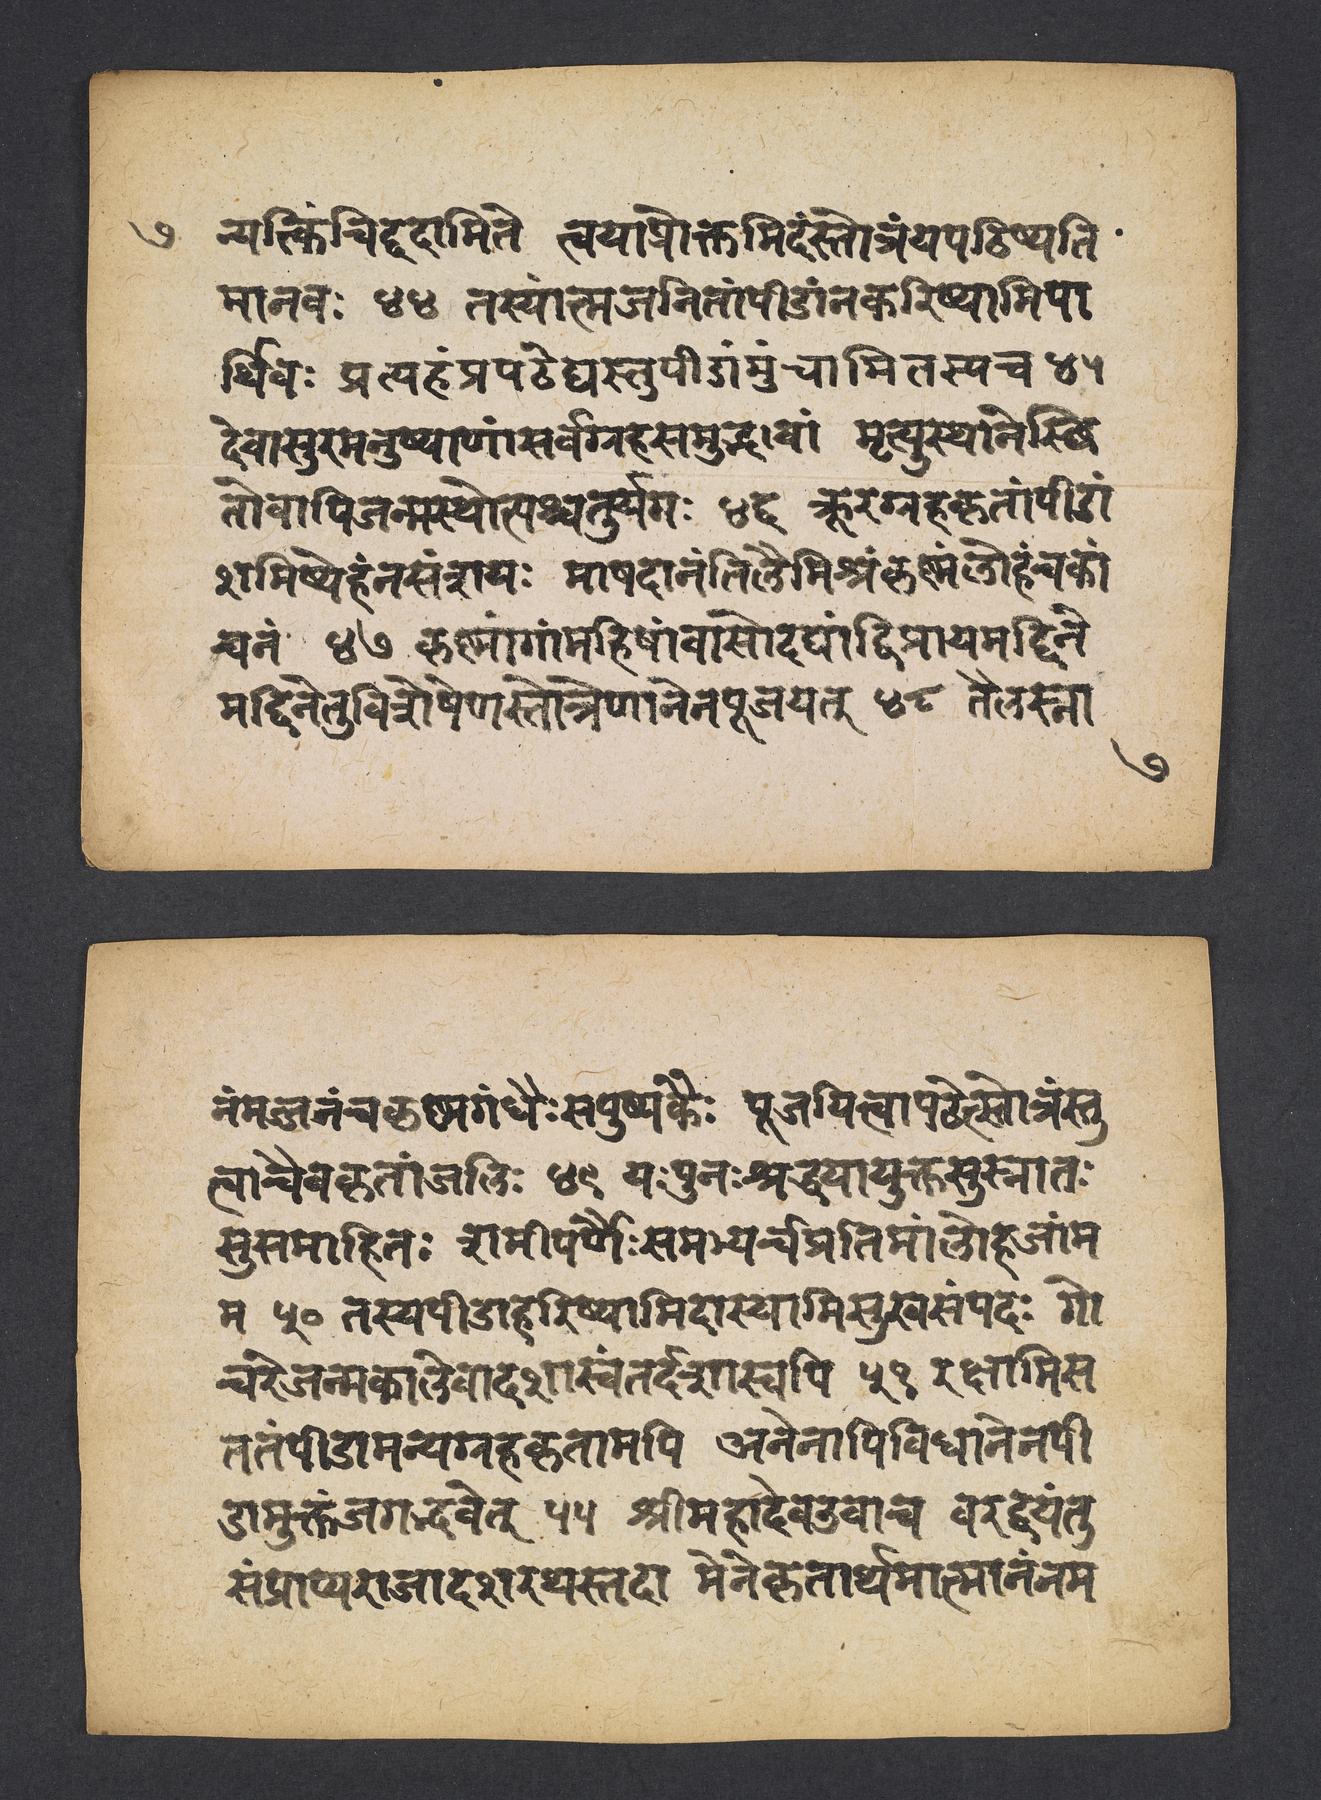 ७ न्यत्किंचिद्ददामिते त्वयाप्रोक्तमिदंस्तोत्रंयपठिष्यति
मानवः ४४ तस्यात्मजनितांपीडांनकरिष्यामिपा
र्थिवः प्रत्यहंप्रपठेद्यस्तुपीडांमुंचामितस्यच ४५
देवासुरमनुष्याणांसर्वग्रहसमुद्भावां मृत्युस्थानेस्थि
तोवापिजन्मस्थोत्पश्चतुर्यगः ४६ क्रूरग्रहकृतांपीडां
शमिष्येहंनसंशयः माषदानंतिलैमिश्रंकृष्णंलोहंचकां
चनं ४७ कृष्णांगांमहिषांवासोदद्यांद्विप्रायमद्दिने
मद्दिनेतुविशेषेणस्तोत्रेणानेनपूजयत् ४८ तैलस्ना
७
नंमज्जनंचकृष्णगंधैःसपुष्पकैः पूजयित्वापठेत्स्तोत्रंस्तु
त्वाचैवकृतांजलिः ४९ यःपुनःश्रद्धयायुक्तसुस्नातः
सुसमाहितः शमीपर्णैःसमभ्यर्च्यप्रतिमांलोहजांम
म ५० तस्यपीडाहरिष्यामिदास्यामिसुखसंपदः गो
चरेजन्मकालेवादशास्वंतर्दशास्वपि ५१ रक्षामिस
ततंपीडामन्यग्रहकृतामपि अनेनापिविधानेनपी
डामुक्तंजगद्भवेत् ५५ श्रीमहादेवउवाच वरद्वयंतु
संप्राप्यराजादशरथस्तदा मेनेकृतार्थमात्मानंनम